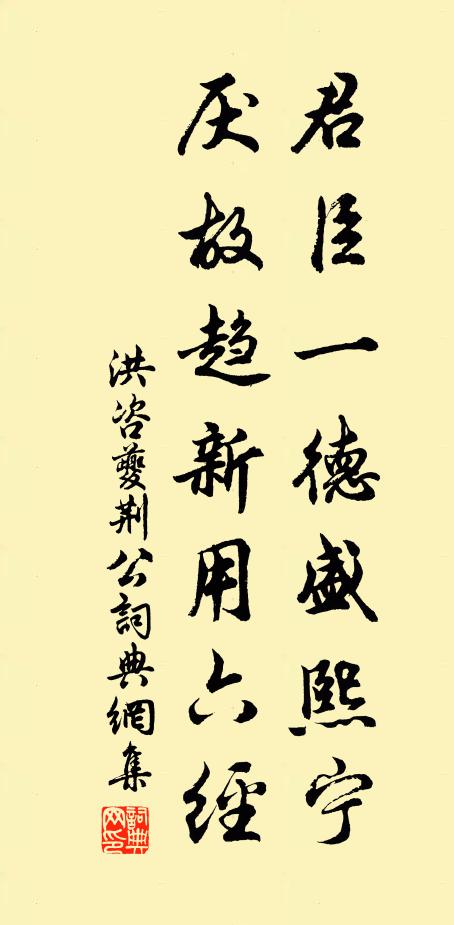 君臣一德盛熙宁
厌故趋新用六经
洪咨夔荆公詞典網集
詞典网印